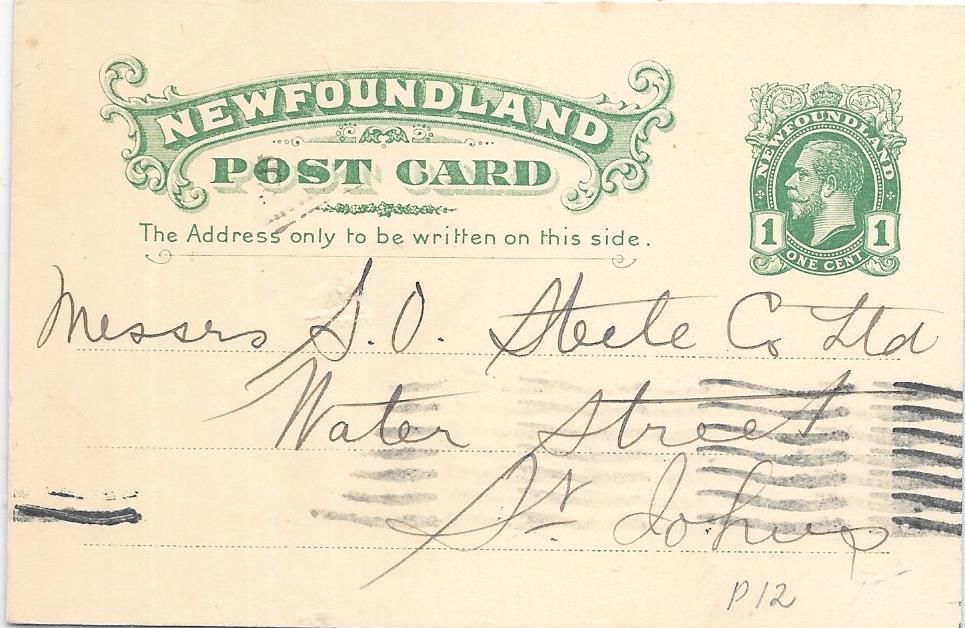 NEWFOUNDLAND
POST CARD
The Address only to be written on this side.
NEWFOUNDLAND
1 1
ONE CENT
Messrs S.O. Steele Co Ltd
Water Street
St Johns
P12